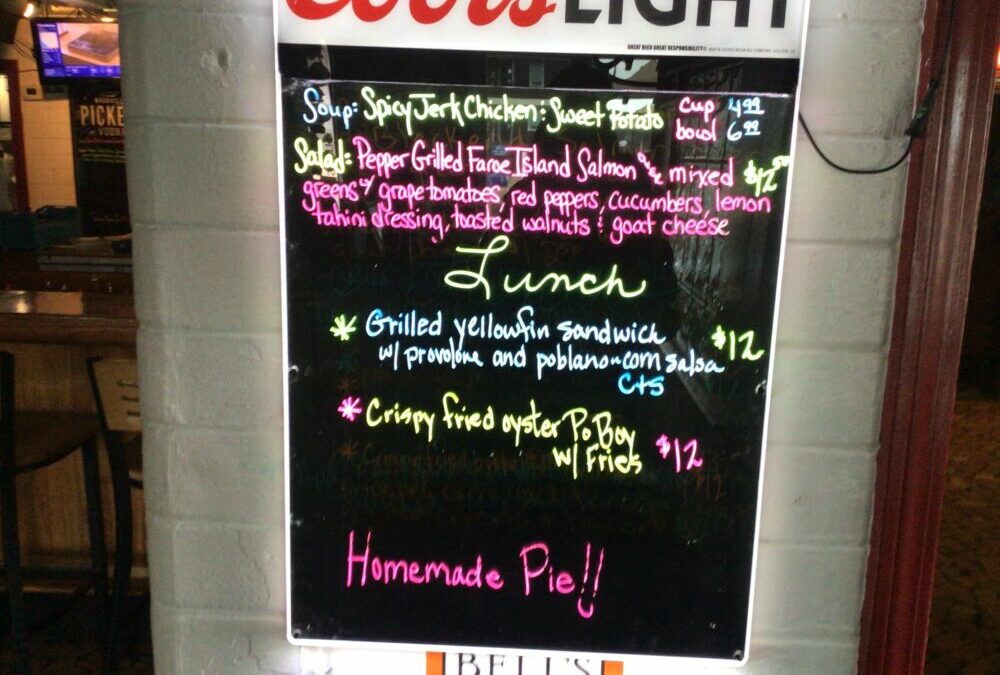 Coors LIGHT
GREAT BEER GREAT RESPONSIBILITY®
Soup: Spicy Jerk Chicken : Sweet Potato cup 4.99
bowl 6.99
Salad: Pepper Grilled Faroe Island Salmon over mixed $12.50
greens w/ grape tomatoes, red peppers, cucumbers, lemon
tahini dressing, toasted walnuts & goat cheese
Lunch
* Grilled yellowfin sandwich $12
w/ provolone and poblano-corn salsa
CTS
* Crispy fried oyster Po Boy
w/ Fries $12
Homemade Pie!!
BELL'S
PICKE
VODKA